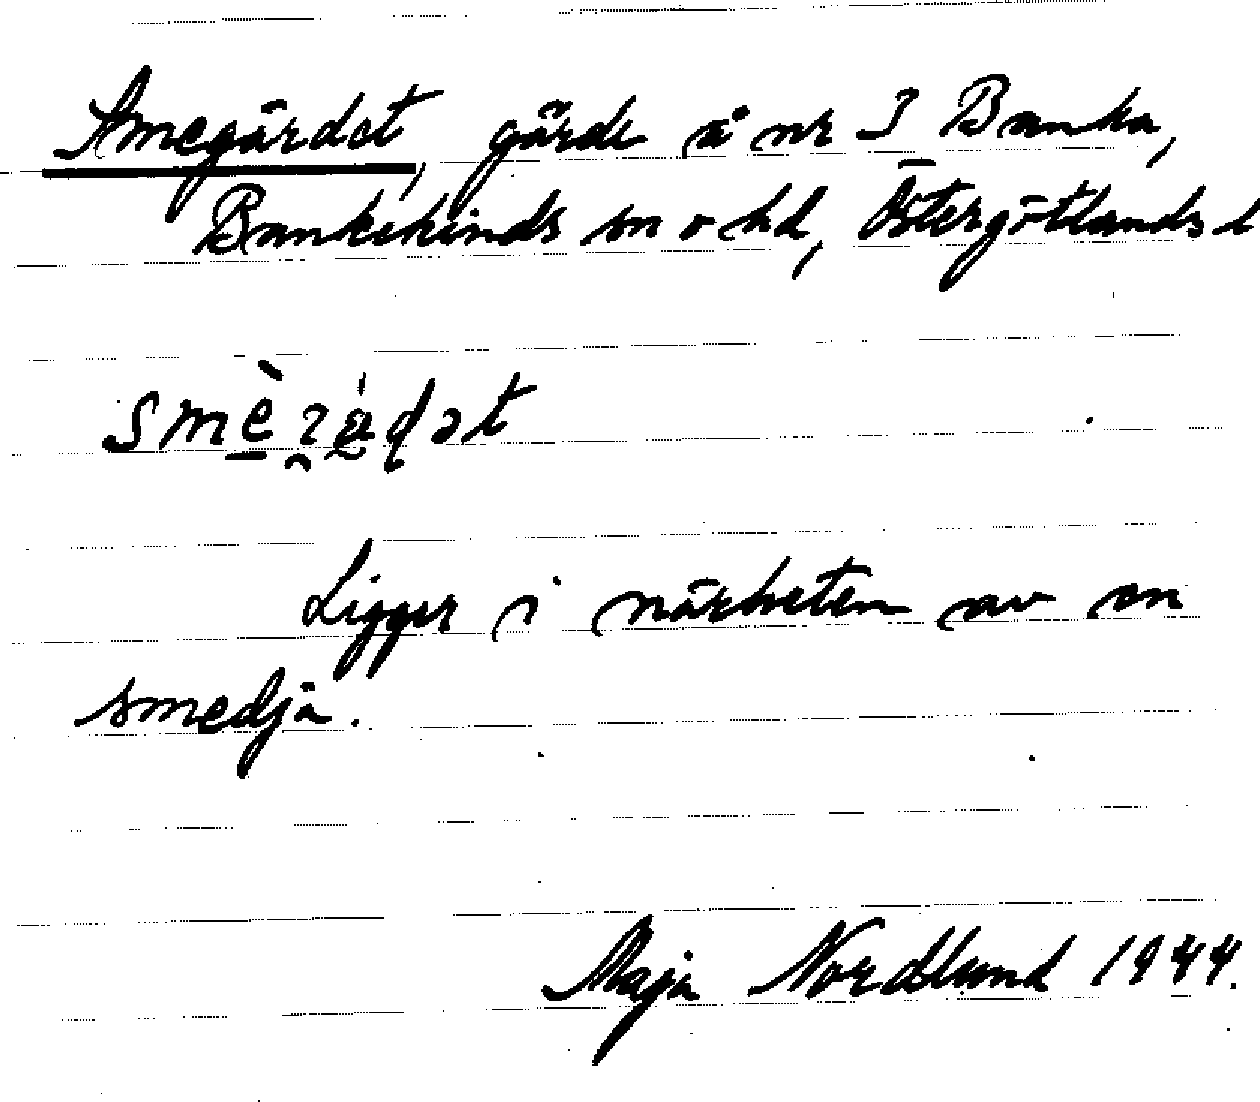 Smegärdet, gärde å nr 3 Banka,
Bankekinds sn o hd, Östergötlands l
Ligger i närheten av en
smedja.
Maja Nordlund 1944.